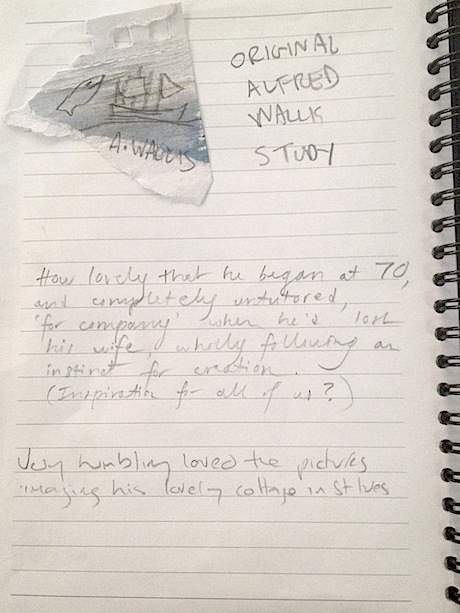 A. WALLIS
ORIGINAL
ALFRED
WALLIS
STUDY
How lovely that he began at 70,
and completely untutored,
'for company' when he'd lost
his wife, wholly following an
instinct for creation.
(Inspiration for all of us?)
Very humbling loved the pictures
imaging his lovely cottage in St Ives